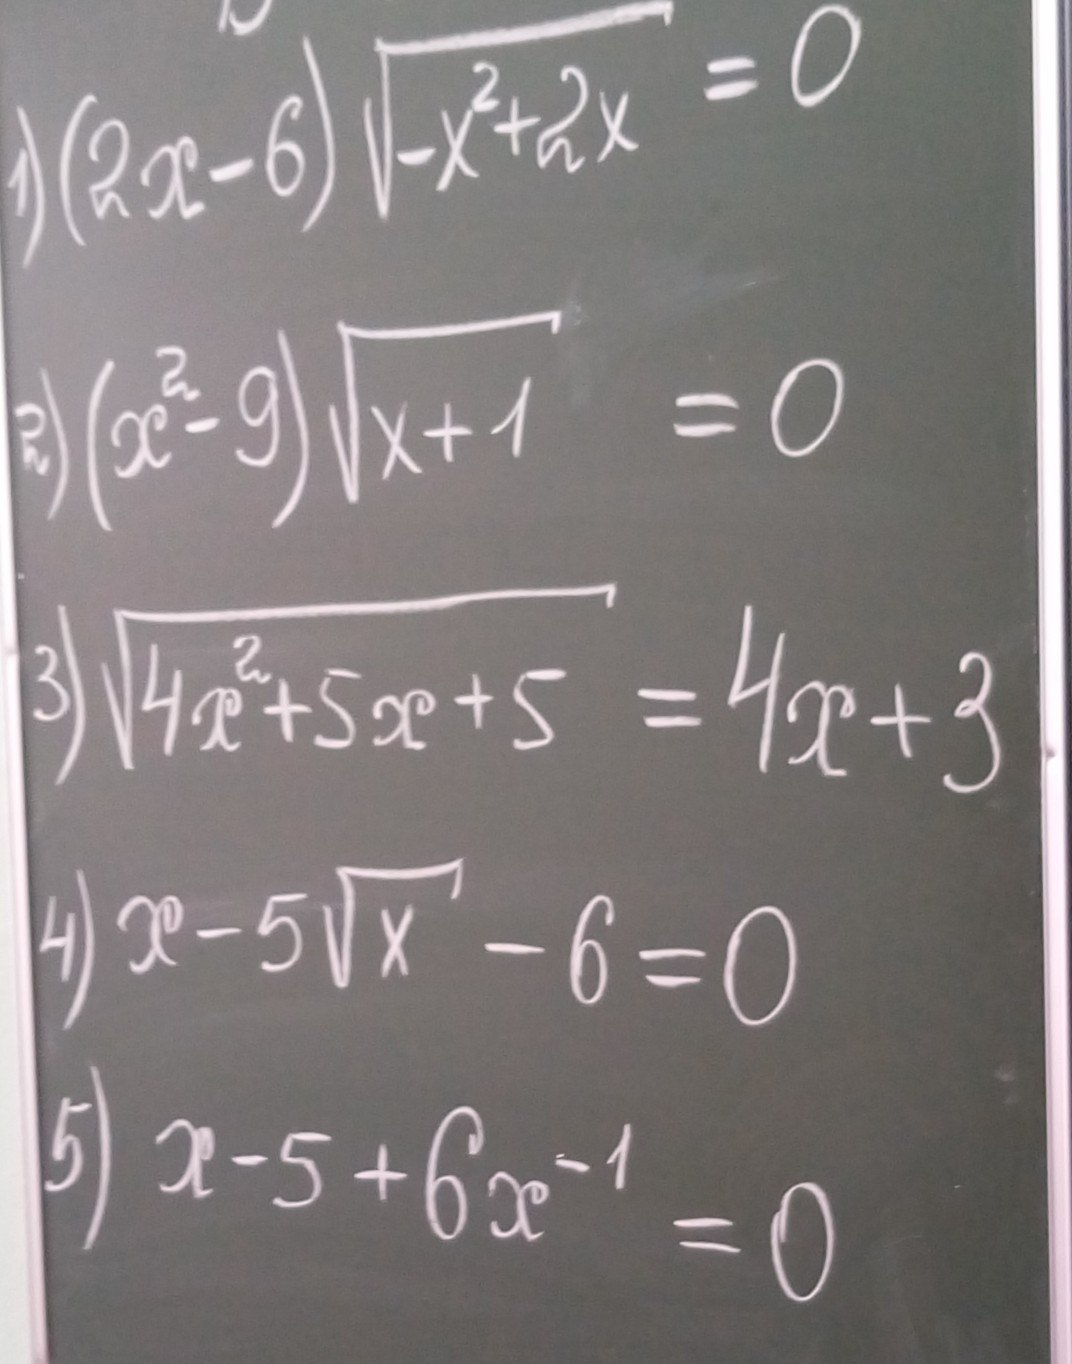 1) (2x-6)√(-x²+2x) = 0
2) (x²-9)√(x+1) = 0
3) √(4x²+5x+5) = 4x+3
4) x-5√x - 6 = 0
5) x-5+6x⁻¹ = 0